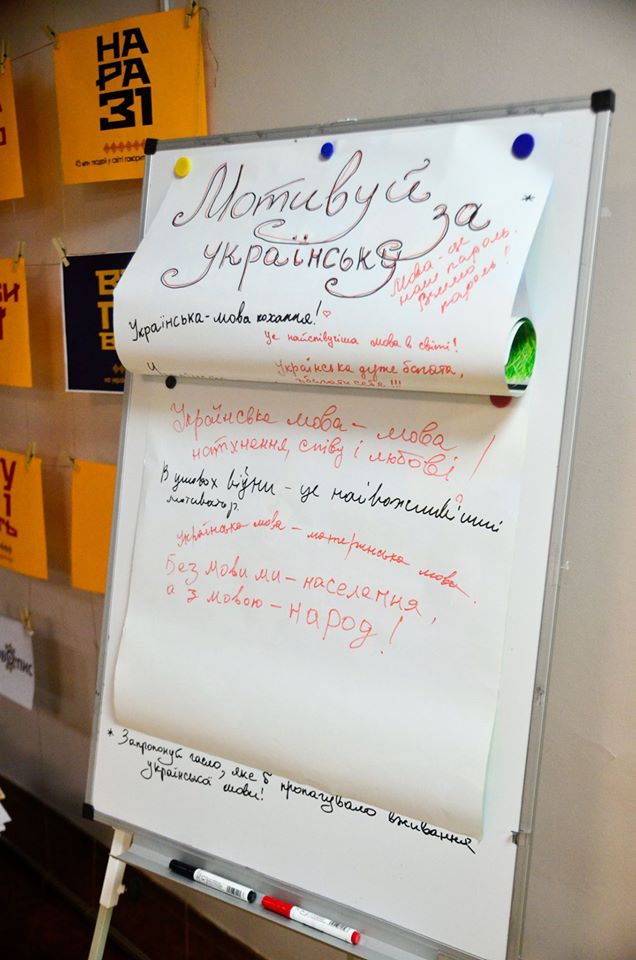 НА
РА
31
45 млн людей у світі говорить
Мотивуй за
українську
*
Мова - це
наш пароль.
Вчимо
пароль!
Українська - мова кохання!
Це найспівучіша мова в світі!
Українська дуже багата,
Українська мова - мова
натхнення, співу і любові!
В умовах війни - це найважливіший
мотиватор.
Українська мова - материнська мова.
Без мови ми - населення,
а з мовою - народ!
* Запропонуй гасло, яке б пропагувало вживання
української мови!